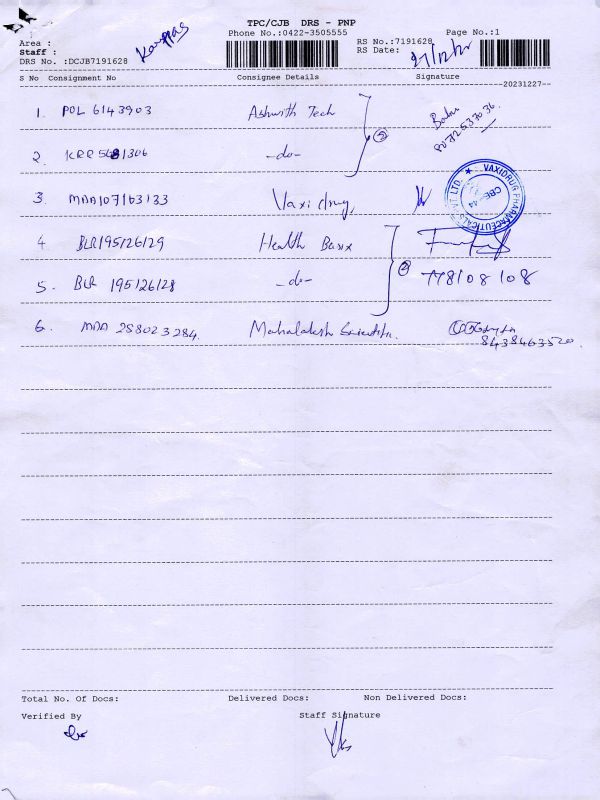 TPC/CJB DRS - PNP
Phone No.:0422-3505555
Page No.:1
Area :
RS No.:7191628
Staff :
RS Date: 27/12/23
DRS No. :DCJB7191628
S No Consignment No Consignee Details Signature
20231227
1. POL 6143903 Ashwith Tech
2. -do- ②
3. MAA107163133 Vaxidrug,
VAXIDRUG PHARMACEUTICALS PVT LTD. ★
4. BLR195126129 Health Basix
5. BLR 195126128 -do- ②
778108108
6. MAA 258023284. Mahalaksh Scientific.
8438463520
Total No. Of Docs: Delivered Docs: Non Delivered Docs:
Verified By Staff Signature